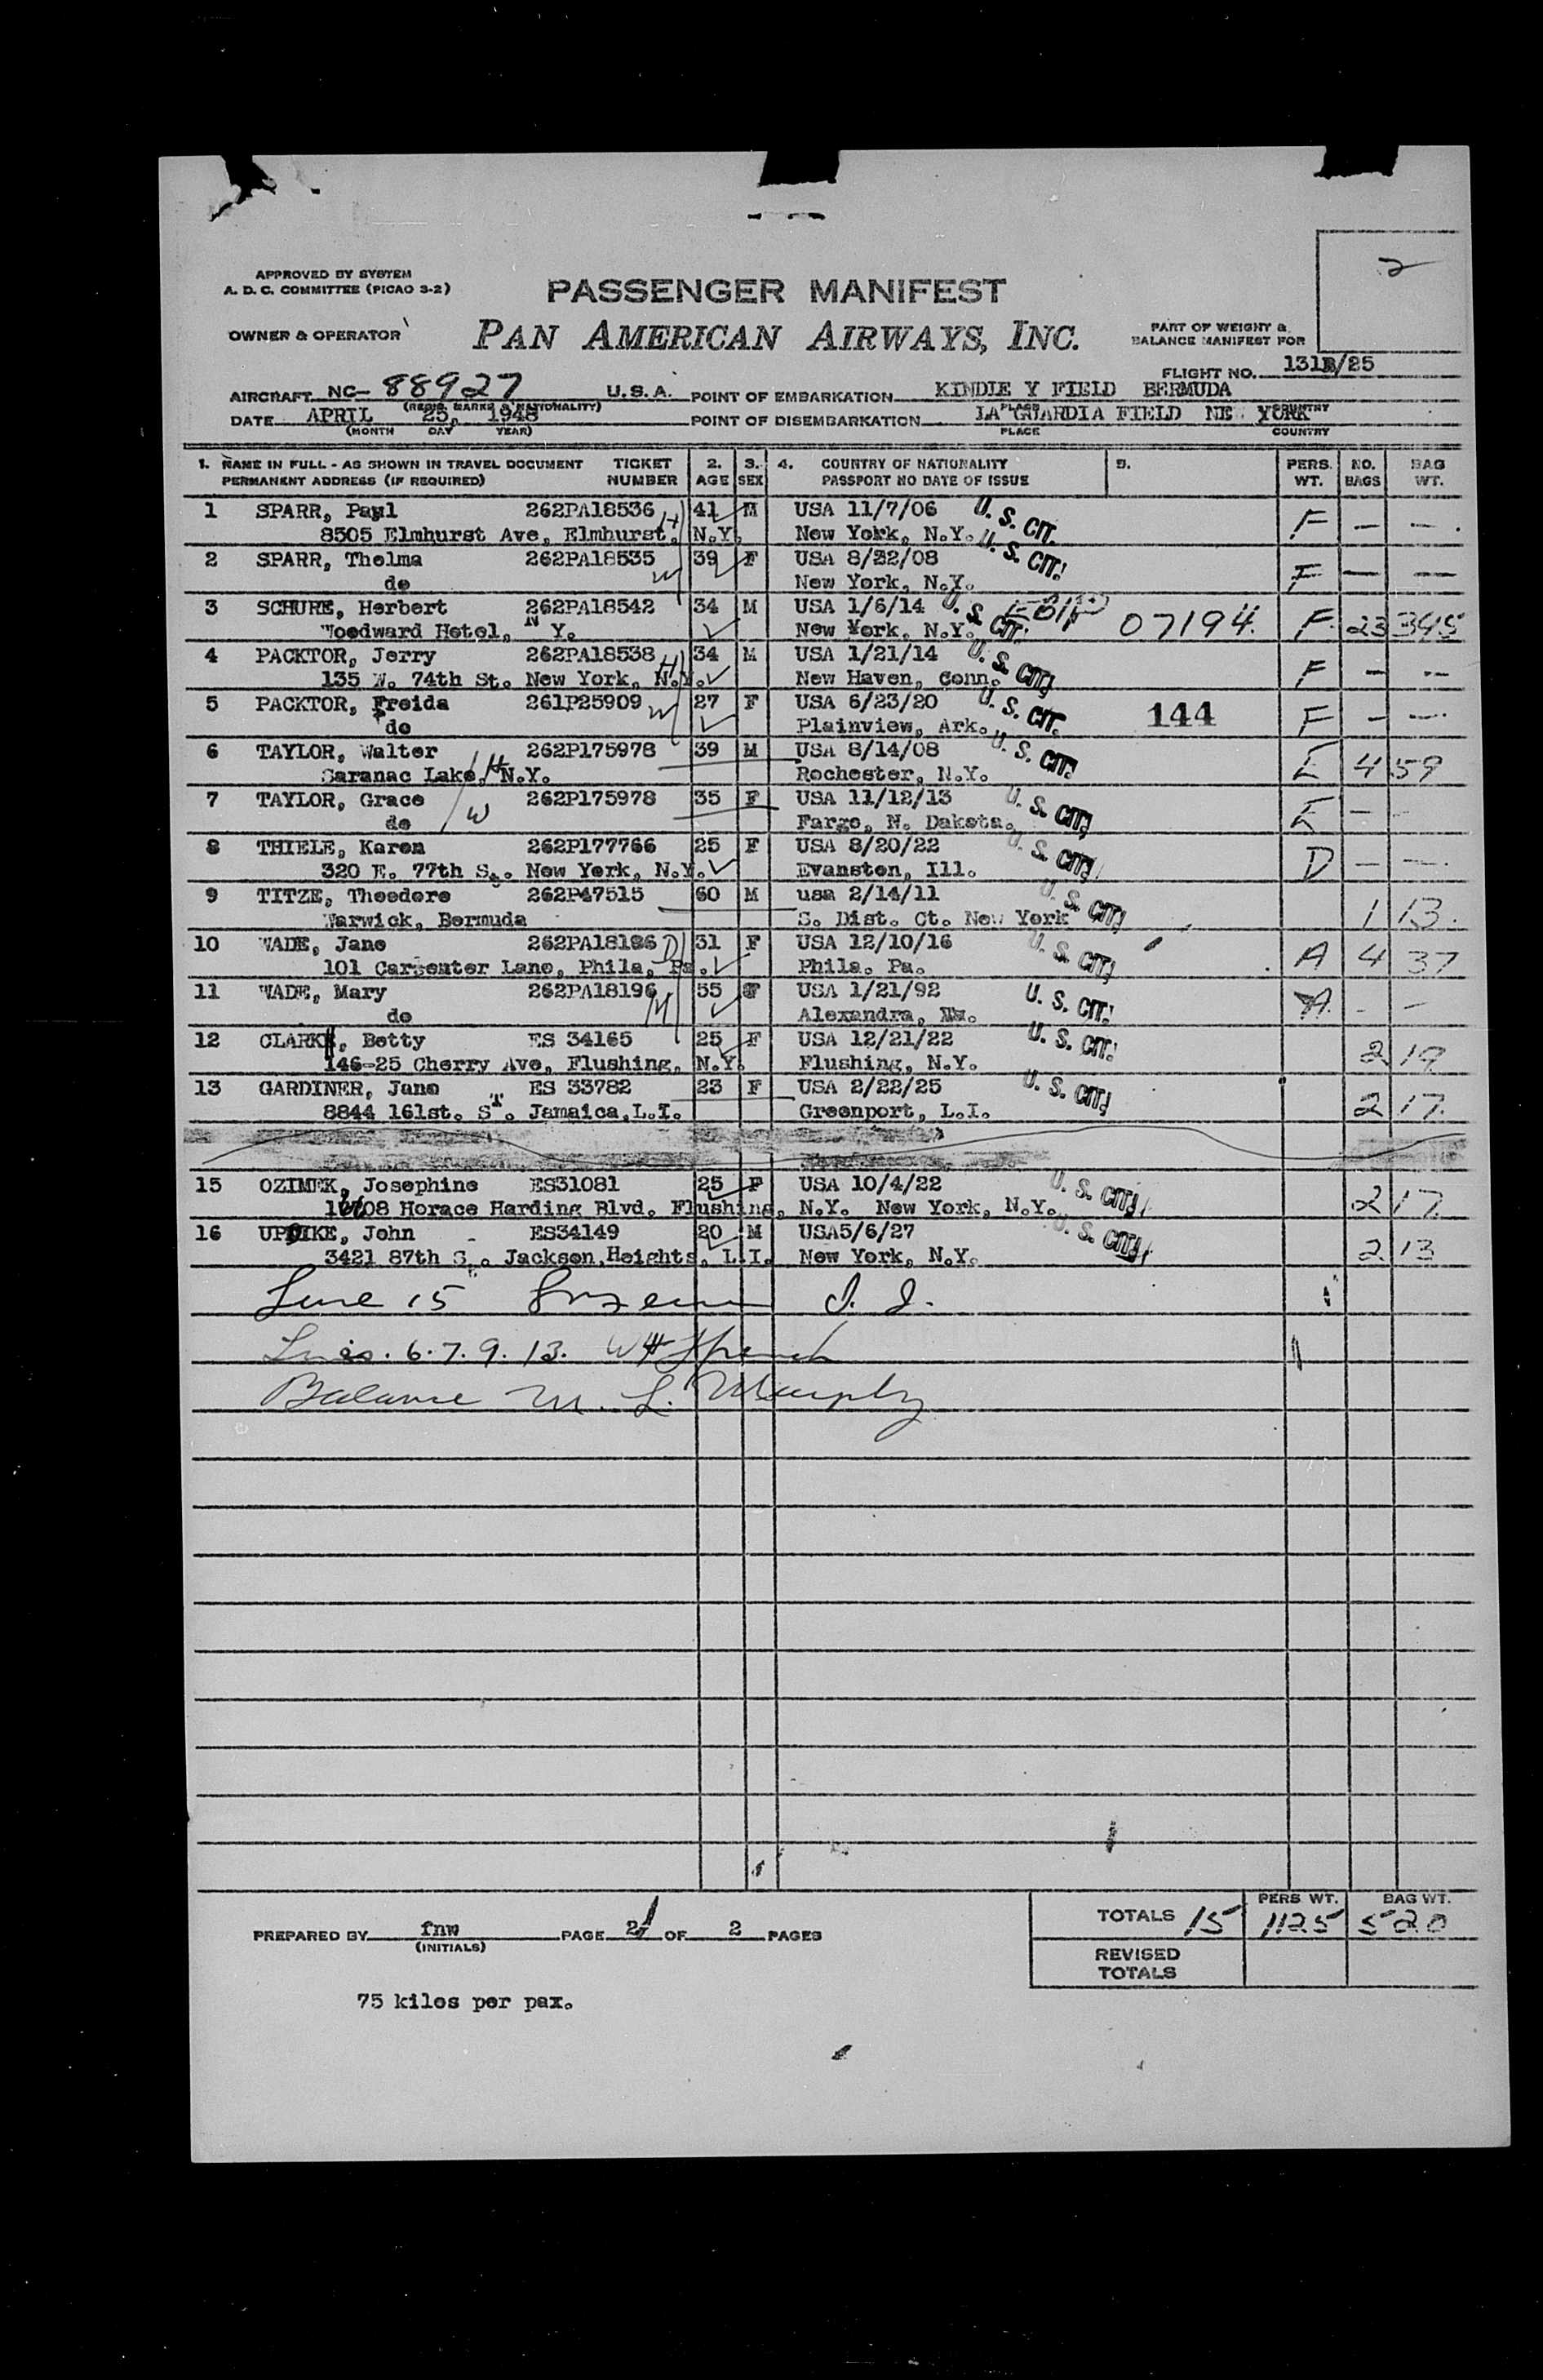 2
APPROVED BY SYSTEM
A. D. C. COMMITTEE (PICAO 3-2)
PASSENGER MANIFEST
OWNER & OPERATOR
PAN AMERICAN AIRWAYS, INC.
PART OF WEIGHT &
BALANCE MANIFEST FOR
FLIGHT NO. /25
AIRCRAFT NC- 88927 U.S.A. POINT OF EMBARKATION KINDLE Y FIELD BERMUDA
(REGIS. MARKS & NATIONALITY) PLACE COUNTRY
DATE APRIL 25, 1948 POINT OF DISEMBARKATION LA GUARDIA FIELD NE YORK
(MONTH DAY YEAR) PLACE COUNTRY
1. NAME IN FULL - AS SHOWN IN TRAVEL DOCUMENT TICKET 2. 3. 4. COUNTRY OF NATIONALITY 5. PERS. NO. BAG
PERMANENT ADDRESS (IF REQUIRED) NUMBER AGE SEX PASSPORT NO DATE OF ISSUE WT. BAGS WT.
1 SPARR, Paul 262PA18536 H 41 M USA 11/7/06 U. S. CIT. F — —
8505 Elmhurst Ave, Elmhurst, N.Y. New York, N.Y.
2 SPARR, Thelma 262PA18535 W 39 F USA 8/22/08 U. S. CIT. F — —
do New York, N.Y.
3 SCHURE, Herbert 262PA18542 34 M USA 1/6/14 U. S. CIT. 07194 F 23 395
Woodward Hotel, N Y. New York, N.Y.
4 PACKTOR, Jerry 262PA18538 H 34 M USA 1/21/14 U. S. CIT. F — —
135 W. 74th St. New York, N.Y. New Haven, Conn.
5 PACKTOR, Freida 261P25909 W 27 F USA 6/23/20 U. S. CIT. 144 F — —
do Plainview, Ark.
6 TAYLOR, Walter 262P175978 39 M USA 8/14/08 U. S. CIT. E 4 59
Saranac Lake, N.Y. H Rochester, N.Y.
7 TAYLOR, Grace 262P175978 35 F USA 11/12/13 U. S. CIT. E — —
do W Fargo, N. Dakota.
8 THIELE, Karen 262P177766 25 F USA 8/20/22 U. S. CIT. D — —
320 E. 77th S . New York, N.Y. Evanston, Ill.
9 TITZE, Theodore 262P47515 60 M usa 2/14/11 U. S. CIT. 1 13
Warwick, Bermuda S. Dist. Ct. New York
10 WADE, Jane 262PA18186 D 31 F USA 12/10/16 U. S. CIT. A 4 37
101 Carpenter Lane, Phila, Pa. Phila. Pa.
11 WADE, Mary 262PA18196 M 55 F USA 1/21/92 U. S. CIT. A - —
do Alexandra,
12 CLARK, Betty ES 34165 25 F USA 12/21/22 U. S. CIT. 2 19
146-25 Cherry Ave, Flushing, N.Y. Flushing, N.Y.
13 GARDINER, Jane ES 33782 23 F USA 2/22/25 U. S. CIT. 2 17
8844 161st. ST. Jamaica, L.I. Greenport, L.I.
15 OZIMEK, Josephine ES31081 25 F USA 10/4/22 U. S. CIT. 2 17
08 Horace Harding Blvd. Flushing, N.Y. New York, N.Y.
16 UPDIKE, John ES34149 20 M USA5/6/27 U. S. CIT. 2 13
3421 87th S . Jackson Heights, L.I. New York, N.Y.
Line 15 I. I.
Lines. 6. 7. 9. 13. WH French
Balance M. L. Murphy
PREPARED BY fnw PAGE 2 OF 2 PAGES
(INITIALS)
PERS WT. BAG WT.
TOTALS 15 1125 520
REVISED
TOTALS
75 kilos per pax.